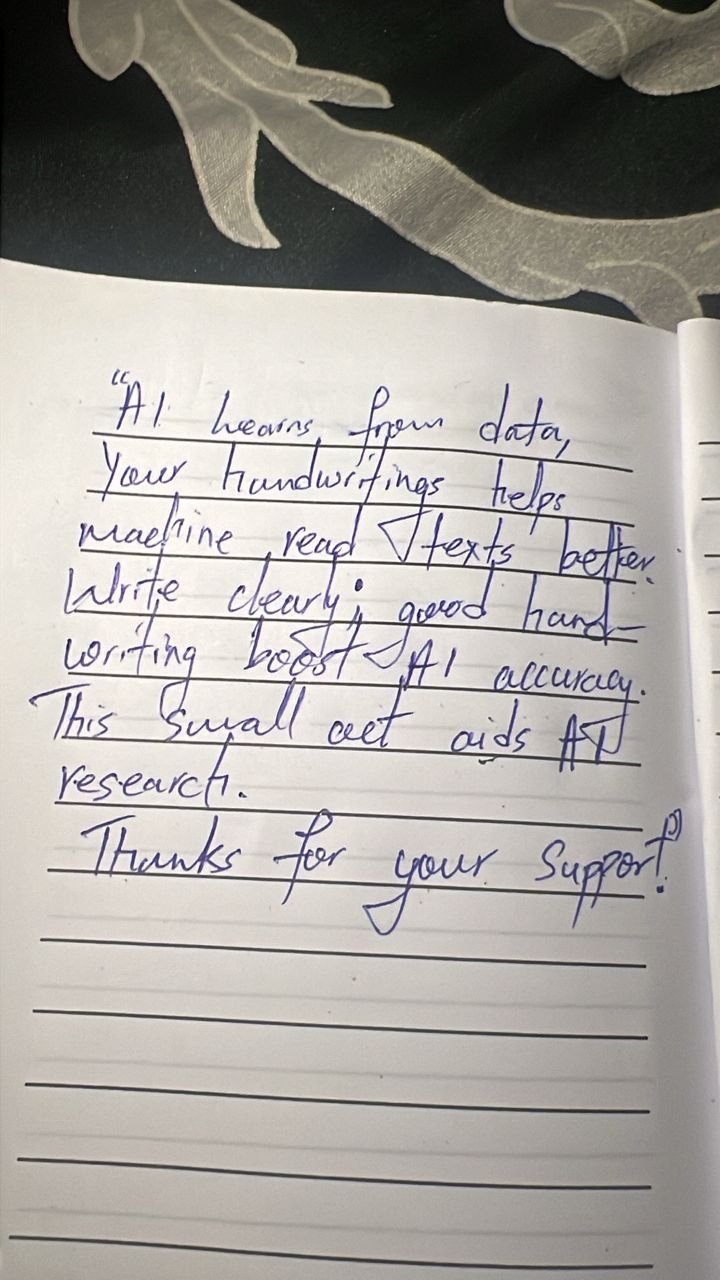 "AI learns from data,
Your handwritings helps
machine read texts better.
Write clearly; good hand-
writing boost AI accuracy.
This small act aids AI
research.
Thanks for your Support!"